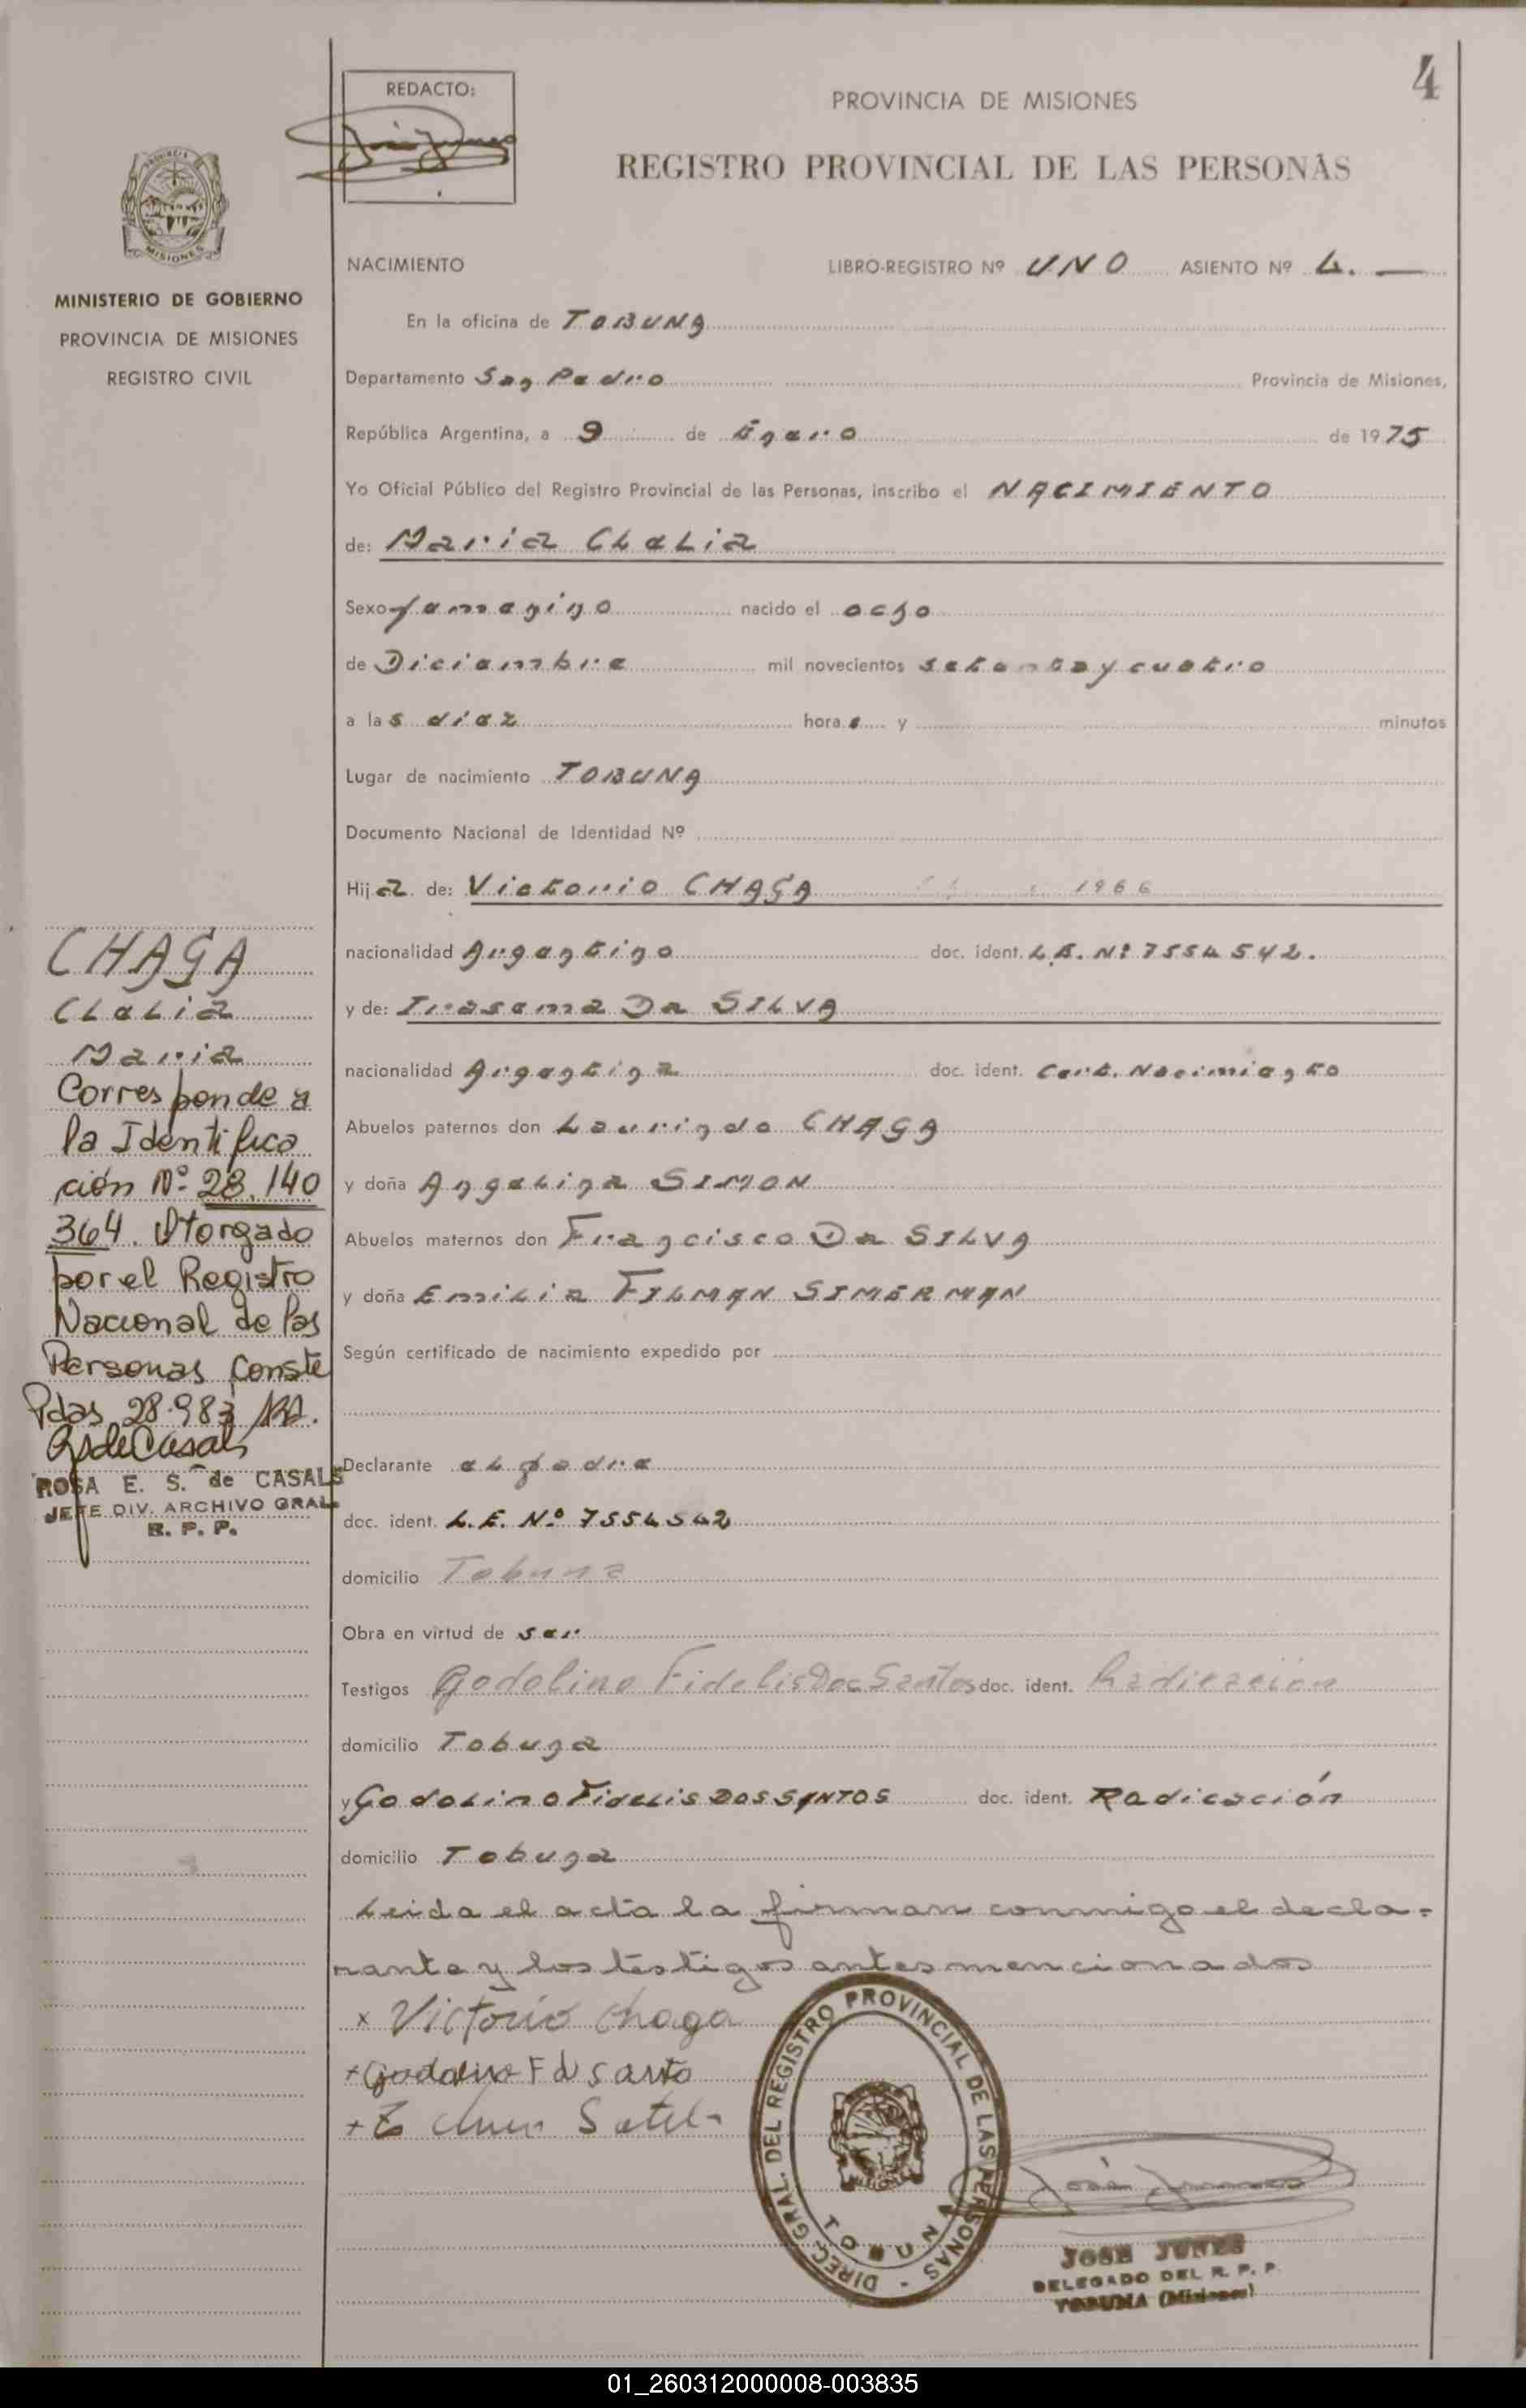 4
REDACTO:
PROVINCIA DE MISIONES
REGISTRO PROVINCIAL DE LAS PERSONAS
MISIONES
MINISTERIO DE GOBIERNO
PROVINCIA DE MISIONES
REGISTRO CIVIL
NACIMIENTO LIBRO-REGISTRO Nº UNO ASIENTO Nº 4. —
En la oficina de TOBUNA
Departamento San Pedro Provincia de Misiones,
República Argentina, a 9 de Enero de 1975
Yo Oficial Público del Registro Provincial de las Personas, inscribo el NACIMIENTO
de: Maria CLeLia
Sexo femenino nacido el ocho
de Diciembre mil novecientos setenta y cuatro
a las diez horas y minutos
Lugar de nacimiento TOBUNA
Documento Nacional de Identidad Nº
Hija de: Victorio CHAGA 1966
nacionalidad Argentino doc. ident. L.E. Nº 7554542.
y de: Irasema Da SILVA
nacionalidad Argentina doc. ident. Cert. Nacimiento
Abuelos paternos don Laurindo CHAGA
y doña Angelina SIMON
Abuelos maternos don Francisco Da SILVA
y doña Emilia FILMAN SIMERMAN
Según certificado de nacimiento expedido por
Declarante el padre
doc. ident. L.E. Nº 7554542
domicilio Tobuna
Obra en virtud de ser
Testigos Godolino Fidelis Dos Santos doc. ident. Radicación
domicilio Tobuna
y Godolino Fidelis DOS SANTOS doc. ident. Radicación
domicilio Tobuna
Leida el acta la firman conmigo el decla-
rante y los testigos antes mencionados
x Victorio Chaga
+ Godolino F d Santo
CHAGA
CLeLia
Maria
Corresponde a
la Identifica
ción Nº 28.140
364. Otorgado
por el Registro
Nacional de las
Personas Conste
Pdas 28.983
ROSA E. S. de CASALS
JEFE DIV. ARCHIVO GRAL.
R. P. P.
DIREC. GRAL. DEL REGISTRO PROVINCIAL DE LAS PERSONAS - TOBUNA
José Junes
JOSE JUNES
DELEGADO DEL R. P. P.
TOBUNA (Misiones)
01_260312000008-003835